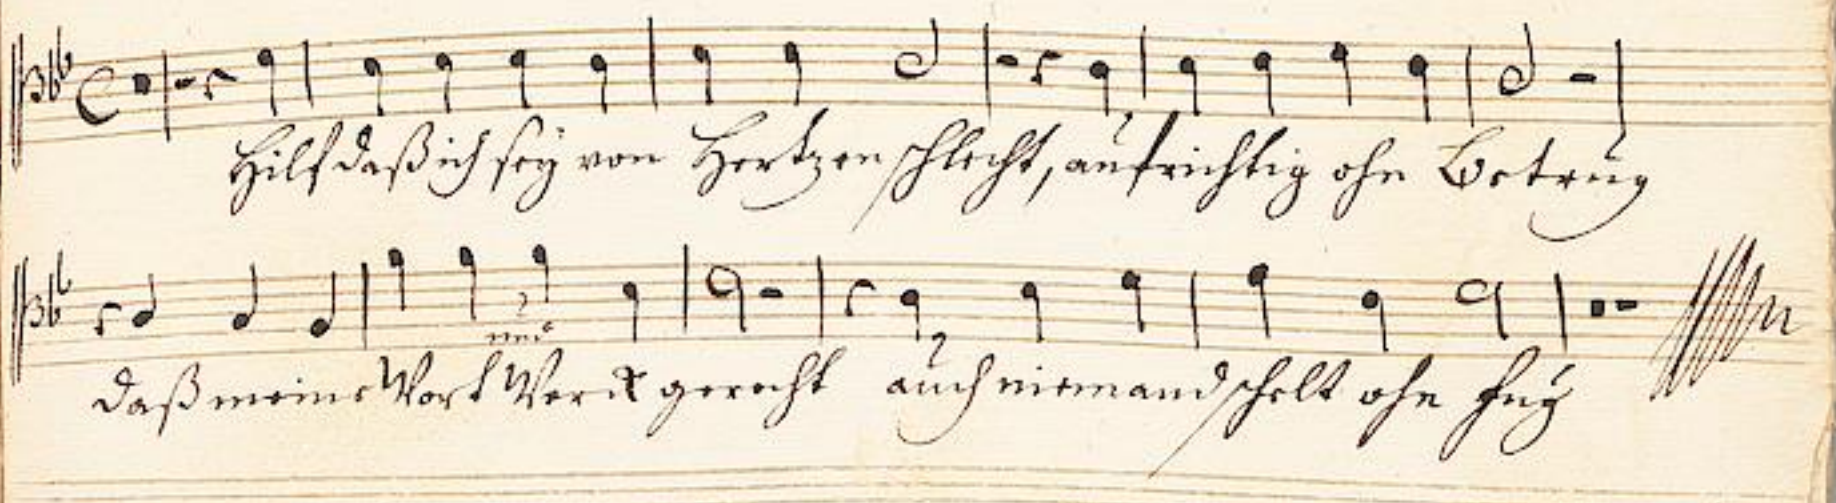 Hilf daß ich sey von Hertzen schlecht, aufrichtig ohn Betrug
und
daß meine Wort Werck gerecht auch niemand schelt ohn fug